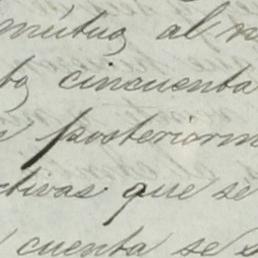 mútua, al
cincuenta
posteriorm
ctivas que se
cuenta se s